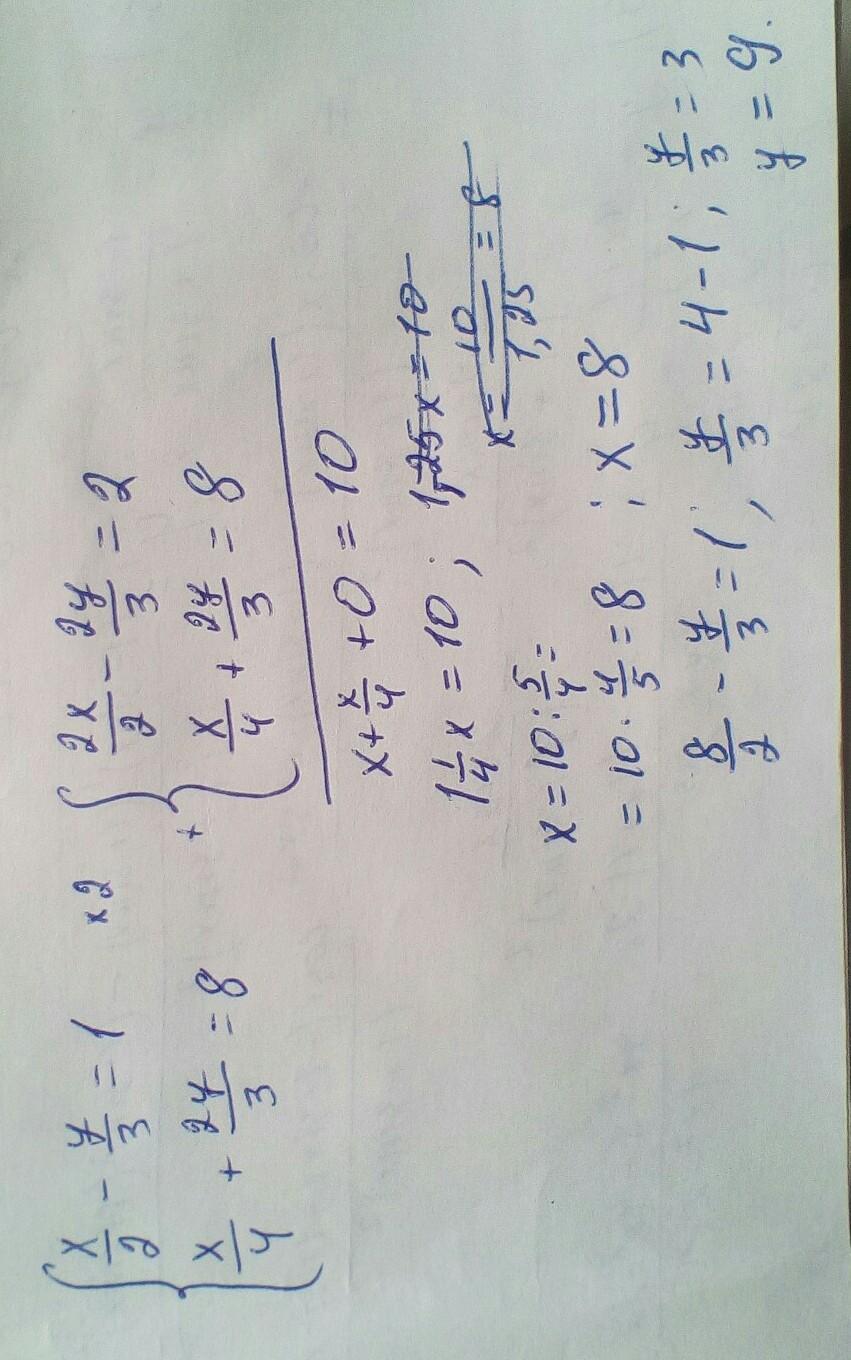 { x/2 - y/3 = 1 ×2 { 2x/2 - 2y/3 = 2
x/4 + 2y/3 = 8 + x/4 + 2y/3 = 8
x + x/4 + 0 = 10
1 1/4 x = 10 ; 1,25x = 10
x = 10/1,25 = 8
x = 10 : 5/4 =
= 10 · 4/5 = 8 ; x = 8
8/2 - y/3 = 1 ; y/3 = 4 - 1 ; y/3 = 3
y = 9.